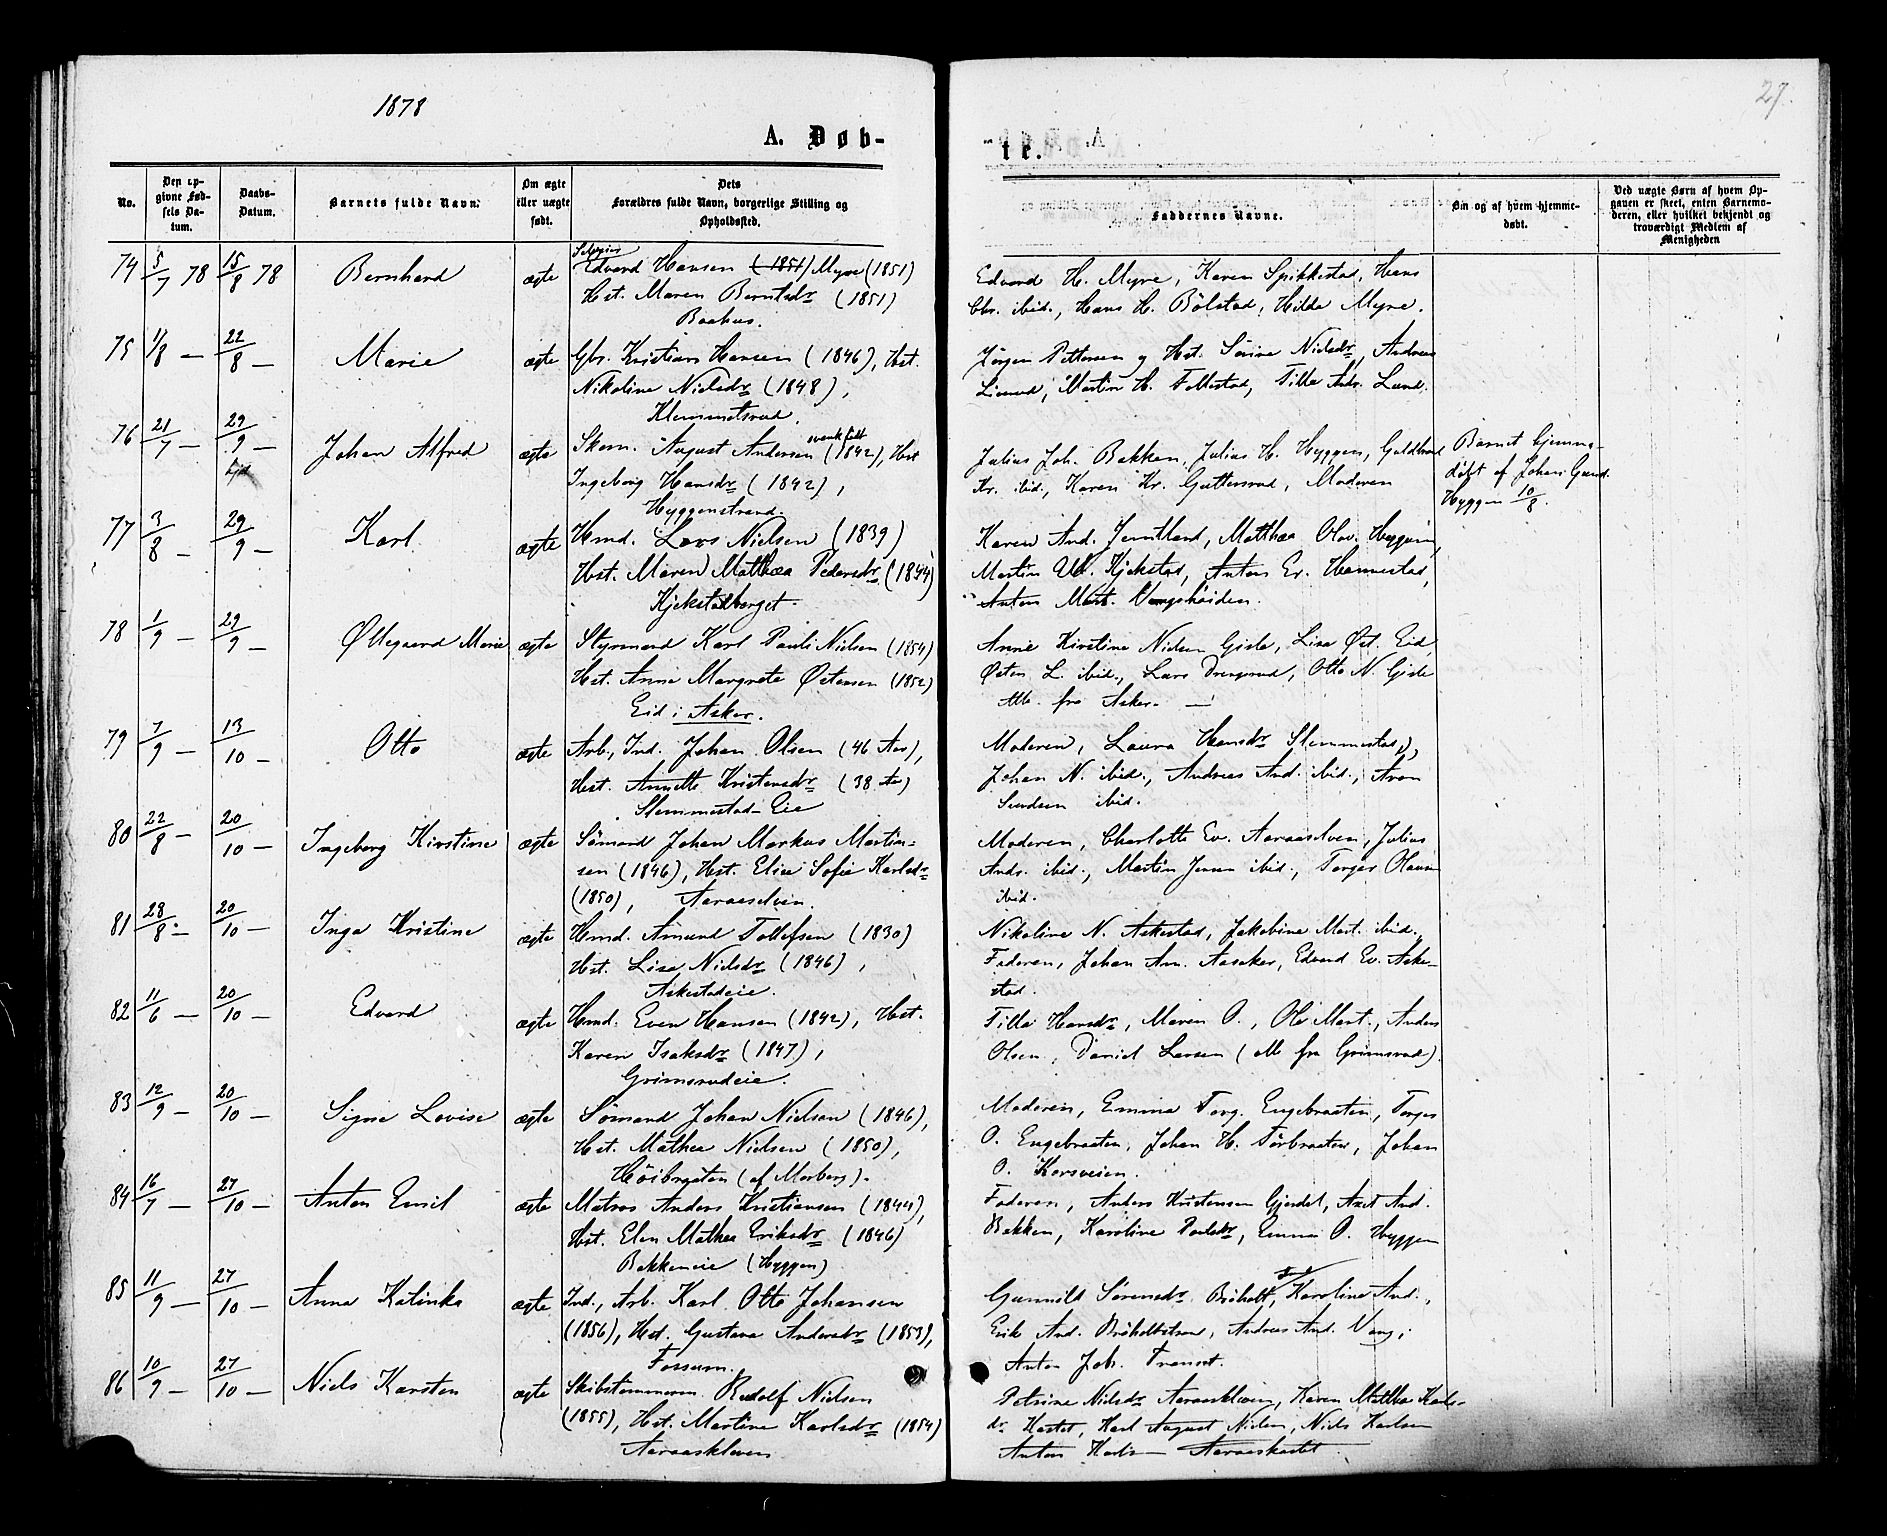 1878
27.
A. Døb-
te.
No.
Den opgivne Fødsels Datum.
Daabs-Datum.
Barnets fulde Navn.
Om ægte eller uægte født.
Dets Forældres fulde Navn, borgerlige Stilling og Opholdssted.
Faddernes Navne.
Om og af hvem hjemmedøbt.
Ved uægte Børn af hvem Opgaven er skeet, enten Barnemoderen, eller hvilket bekjendt og troværdigt Medlem af Menigheden
74 5/7 78 15/8 78 Bernhard ægte Selveier Edvard Hansen (1851) Myre (1851)
Hst. Maren Berntsdr (1851)
Baahus.
Edvard H. Myre, Karen Spikkestad, Hans
Chr. ibid., Hans H. Bølstad, Hilda Myre.
75 1/8 — 22/8 — Marie ægte Gbr. Kristian Hansen (1846), Hst.
Nikoline Nielsdr (1848),
Klemmetsrud.
Jørgen Pettersen og Hst. Sørine Nielsdr, Andreas
Martin H. Follestad, Tilla Andr. Lund.
76 21/7 — 29/9 — Johan Alfred ægte Skom. August Andersen svensk født (1842), Hst
Ingeborg Hansdr (1842),
Hyggenstrand.
Julius Joh. Bakken, Julius H. Hyggen, Guldbrand
Kr. ibid., Karen Kr. Guttersrud, Moderen
Barnet hjemme-
døbt af Johan Gund.
Hyggen 10/8.
77 3/8 — 29/9 — Karl ægte Hmd. Lars Nielsen (1839)
Hst. Maren Mathea Pedersdr (1844)
Kjekstadberget.
Karen And. Jemtland, Matthea Olav. Hyggen,
Martin Ul. Kjekstad, Anton Er. Hennestad,
Anton Mart. Vangshøiden.
78 1/9 — 29/9 — Øllegaard Marie ægte Styrmand Karl Pauli Nielsen (1854)
Hst. Anne Margrete Østensen (1852)
Eid i Asker.
Anne Kirstine Nielsen Gisle, Lisa Øst. Eid,
Østen L. ibid., Lars Drengsrud, Otto N. Gisle
Alle fra Asker. —
79 7/9 — 13/10 — Otto ægte Arb., Ind. Johan Olsen (46 Aar),
Hst. Annette Kristensdr (38 Aar)
Slemmestad-Eie
Moderen, Laura Hansdr Slemmestad,
Johan N. ibid., Andreas And. ibid., Aron
Sundsen ibid.
80 22/8 — 20/10 — Ingeborg Kirstine ægte Sømand Johan Markus Martin-
sen (1846), Hst. Elise Sofie Karlsdr
(1850), Aaraaselven.
Moderen, Charlotte Ev. Aaraaselven, Julius
Andr. ibid., Martin Jensen ibid., Torger Olausen
ibid.
81 28/8 — 20/10 — Inga Kristine ægte Hmd. Amund Tollefsen (1830)
Hst. Lise Nielsdr (1846),
Askestadeie.
Nikoline N. Askestad, Jakobine Mart. ibid.,
Faderen, Johan Am. Aasaker, Edvard Ev. Aske-
stad.
82 11/6 — 20/10 — Edvard ægte Hmd. Even Hansen (1842), Hst.
Karen Isaksdr (1847),
Grimsrudeie.
Tilla Hansdr, Maren O., Ole Mart., Anders
Olsen, Daniel Larsen (alle fra Grimsrud).
83 12/9 — 20/10 — Signe Lovise ægte Sømand Johan Nielsen (1846),
Hst. Mathea Nielsen (1850),
Høibraaten (af Morberg).
Moderen, Emma Torg. Engebraaten, Torger
O. Engebraaten, Johan H. Torbraaten, Johan
O. Korsveien.
84 16/7 — 27/10 — Anton Emil ægte Matros Anders Kristiansen (1844),
Hst. Elen Mathea Eriksdr (1846)
Bakkeneie (Hyggen)
Faderen, Anders Kristensen Gjerdet, Axel And.
Bakken, Karoline Paulsdr, Emma O. Hyggen
85 11/9 — 27/10 — Anna Katinka ægte Ind., Arb. Karl Otto Johansen
(1856), Hst. Gustava Andersdr (1853),
Fossum.
Gunnild Sørensdr Brøholt, Karoline And.,
Erik And. Brøholtstrand, Andreas And. Vang,
Anton Joh. Transet.
86 10/9 — 27/10 — Niels Karsten ægte Skibstømmerm. Rudolf Nielsen
(1855), Hst. Martine Karlsdr (1854)
Aaraaskleven
Petrine Nielsdr Aaraaskleven, Karen Mathea Karls-
dr Kastet, Karl August Nielsen, Niels Karlsen
Anton Karlsen Aaraaskastet.